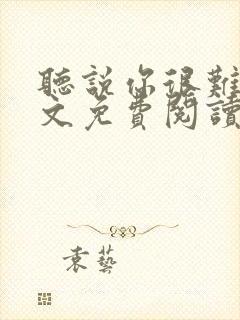 聽說你很難
文免費閱讀
袁藝